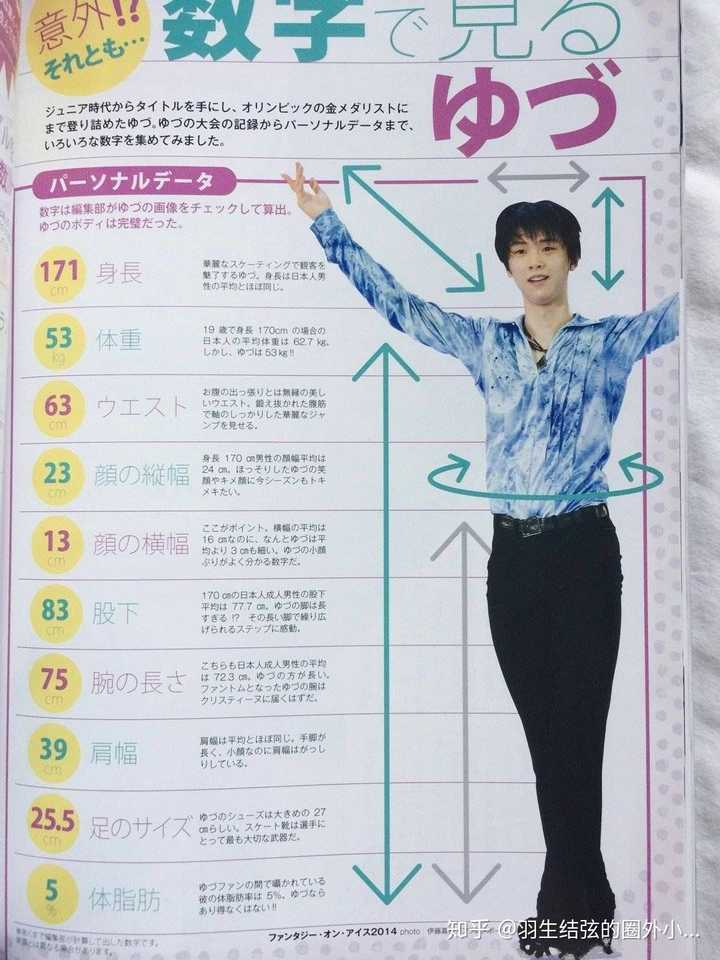 意外!?
それとも…
数字で見る
ゆづ
ジュニア時代からタイトルを手にし、オリンピックの金メダリストに
まで登り詰めたゆづ。ゆづの大会の記録からパーソナルデータまで、
いろいろな数字を集めてみました。
パーソナルデータ
数字は編集部がゆづの画像をチェックして算出。
ゆづのボディは完璧だった。
171
cm
身長
華麗なスケーティングで観客を
魅了するゆづ。身長は日本人男
性の平均とほぼ同じ。
53
kg
体重
19 歳で身長 170cm の場合の
日本人の平均体重は 62.7 kg。
しかし、ゆづは 53 kg !!
63
cm
ウエスト
お腹の出っ張りとは無縁の美し
いウエスト。鍛え抜かれた腹筋
で軸のしっかりした華麗なジャ
ンプを見せる。
23
cm
顔の縦幅
身長 170 ㎝男性の顔幅平均は
24 ㎝。ほっそりしたゆづの笑
顔やキメ顔に今シーズンもトキ
メキたい。
13
cm
顔の横幅
ここがポイント。横幅の平均は
16 ㎝なのに、なんとゆづは平
均より 3 ㎝も細い。ゆづの小顔
ぶりがよく分かる数字だ。
83
cm
股下
170 ㎝の日本人成人男性の股下
平均は 77.7 ㎝。ゆづの脚は長
すぎる !? その長い脚で繰り広
げられるステップに感動。
75
cm
腕の長さ
こちらも日本人成人男性の平均
は 72.3 ㎝。ゆづの方が長い。
ファントムとなったゆづの腕は
クリスティーヌに届くはずだ。
39
cm
肩幅
肩幅は平均とほぼ同じ。手脚が
長く、小顔なのに肩幅はがっし
りしている。
25.5
cm
足のサイズ
ゆづのシューズは大きめの 27
㎝らしい。スケート靴は選手に
とって最も大切な武器だ。
5
%
体脂肪
ゆづファンの間で囁かれている
彼の体脂肪率は 5%。ゆづなら
あり得なくはない !!
ファンタジー・オン・アイス2014 photo 伊藤
編集部が計算して出した数字です。
異なる場合があります。
知乎 @羽生结弦的圈外小...